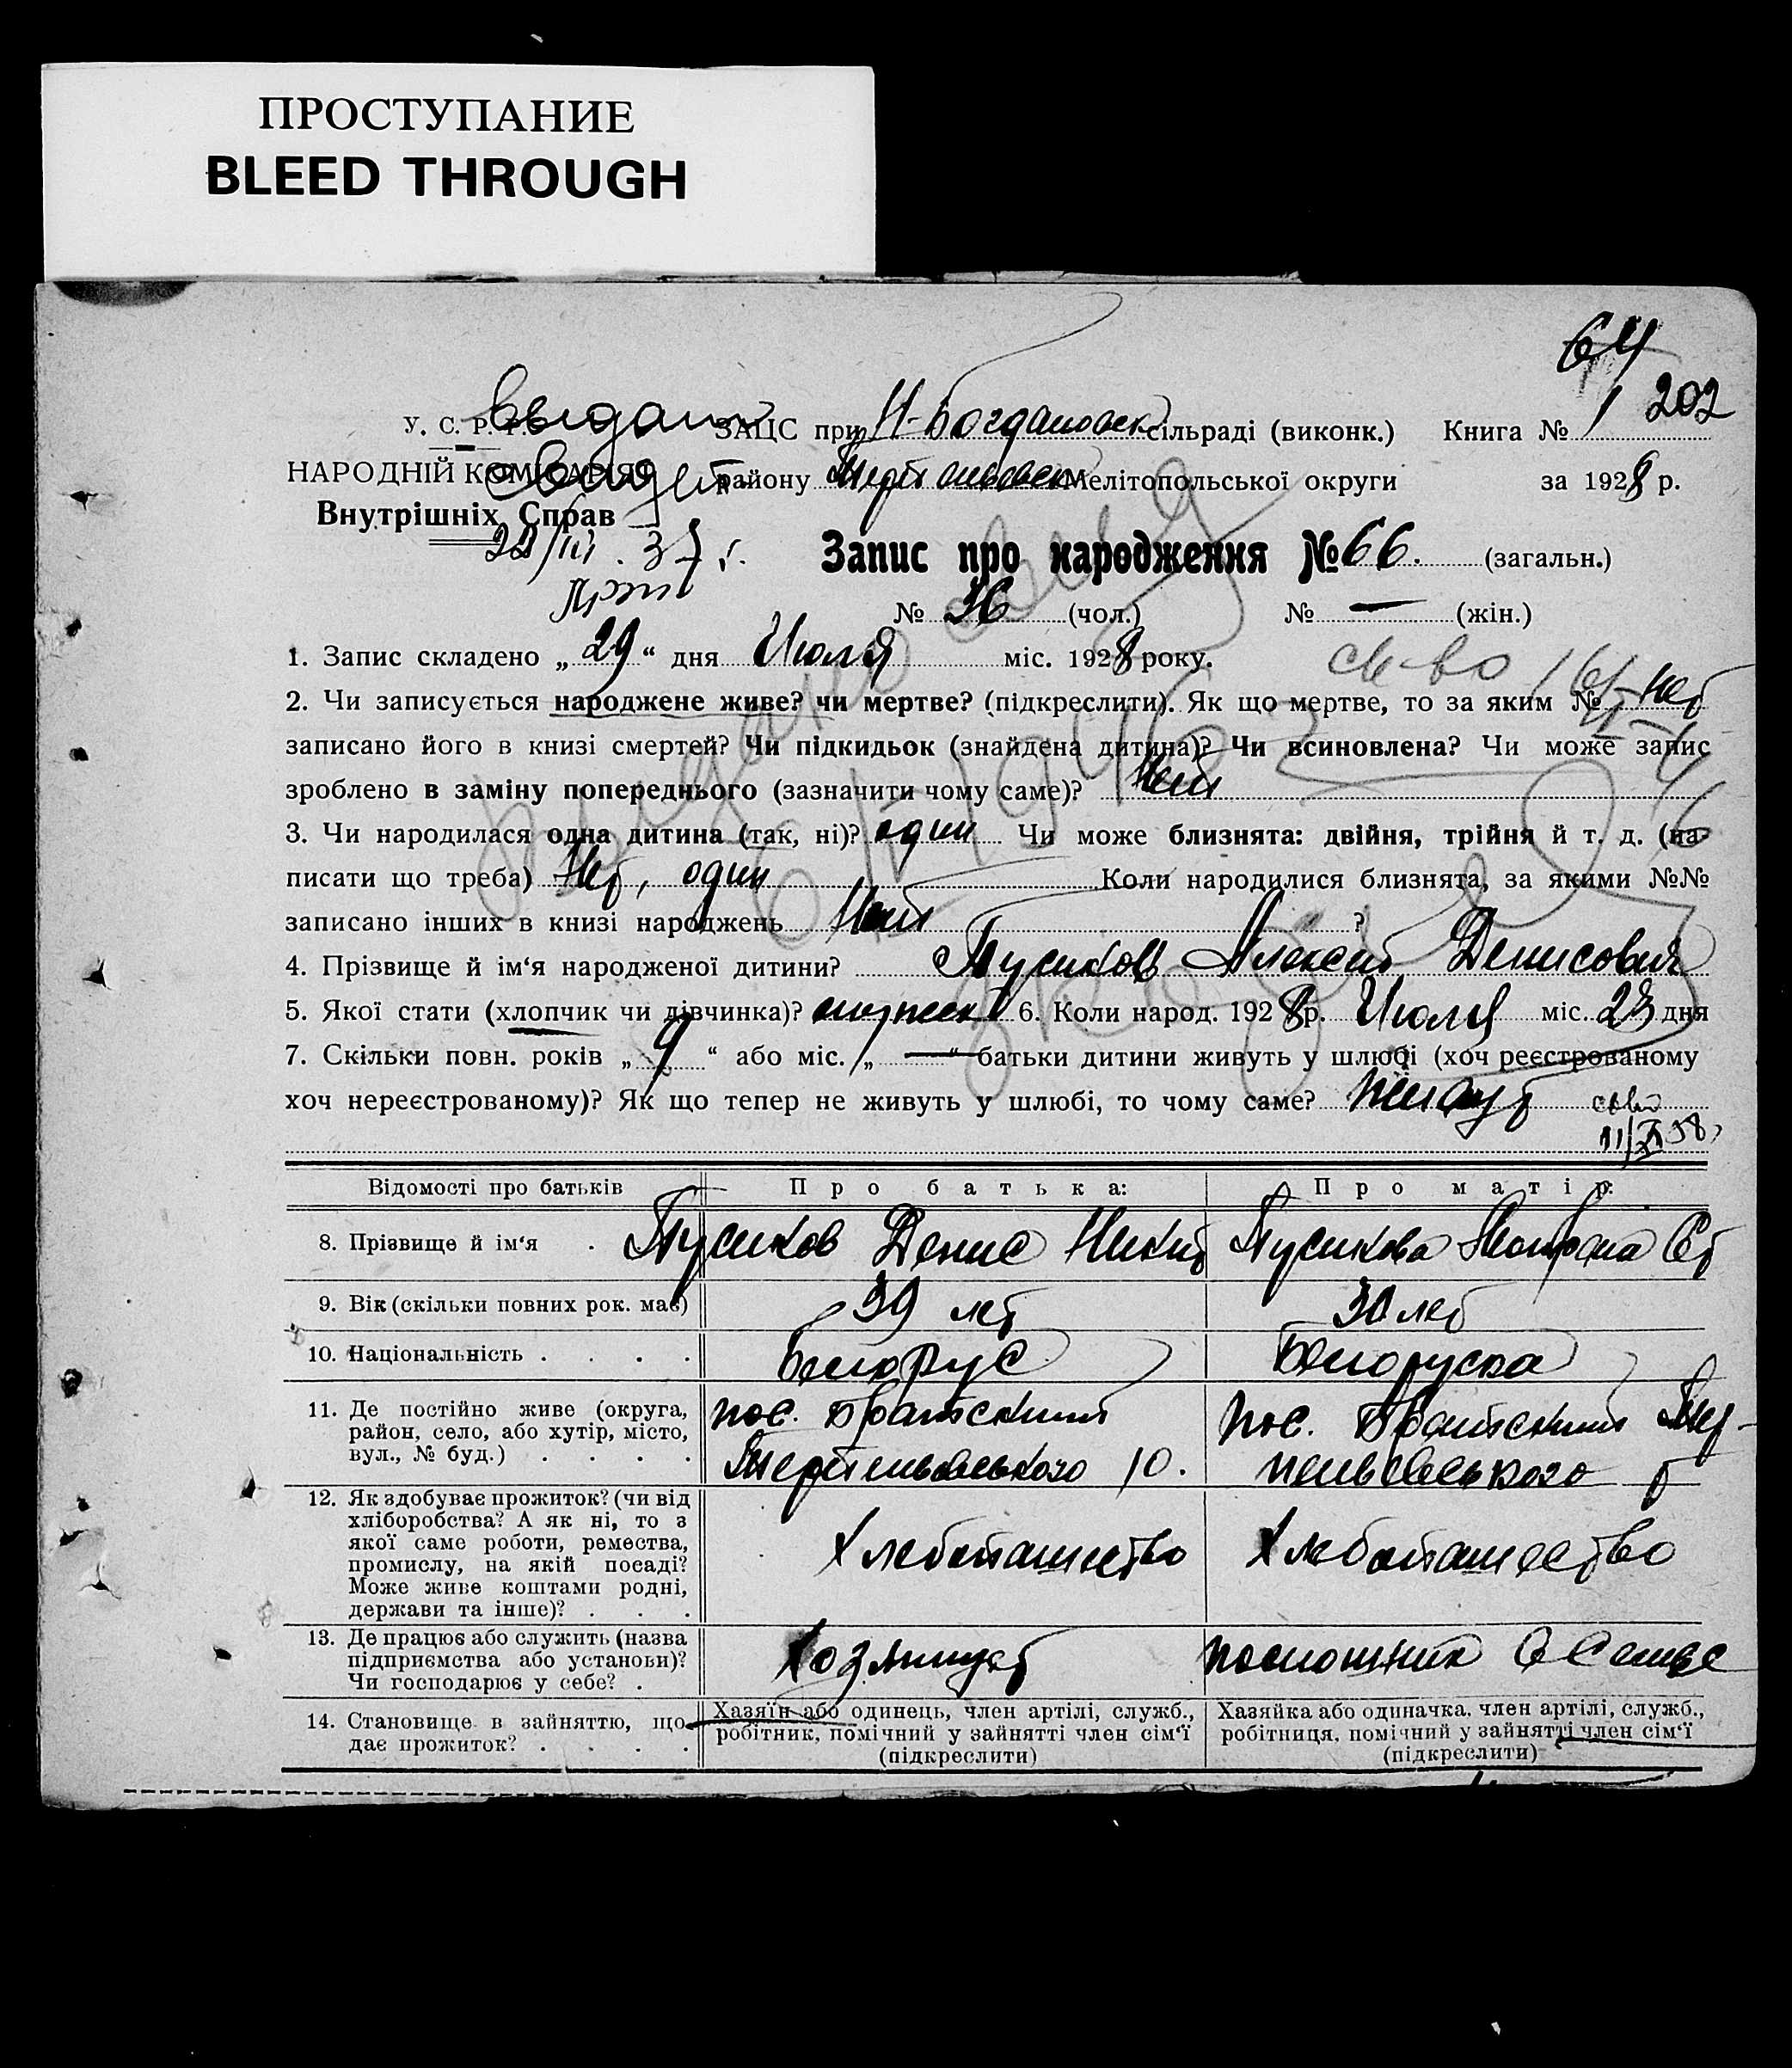 ПРОСТУПАНИЕ
BLEED THROUGH
64
202
У. С. Р. Р. ЗАЦС при Н-Богдановск сільраді (виконк.) Книга № 1
Выдан
НАРОДНІЙ КОМІСАРІЯТ району Мелітопольської округи за 1928 р.
Внутрішніх Справ
37 г.
Запис про народження № 66. (загальн.)
№ 36 (чол.) № — (жін.)
1. Запис складено „ 29 “ дня Июля міс. 1928 року.
св-во
2. Чи записується народжене живе? чи мертве? (підкреслити). Як що мертве, то за яким № нет
записано його в книзі смертей? Чи підкидьок (знайдена дитина)? Чи всиновлена? Чи може запис
зроблено в заміну попереднього (зазначити чому саме)? Нет
3. Чи народилася одна дитина (так, ні)? один Чи може близнята: двійня, трійня й т. д. (на-
писати що треба) Нет, один Коли народилися близнята, за якими №№
записано інших в книзі народжень Нет ?
4. Прізвище й ім‘я народженої дитини? Пусиков Алексей Денисович
5. Якої стати (хлопчик чи дівчинка)? мужск 6. Коли народ. 1928 р. Июля міс. 23 дня
7. Скільки повн. років „ 9 “ або міс. „ — “ батьки дитини живуть у шлюбі (хоч реєстрованому
хоч нереєстрованому)? Як що тепер не живуть у шлюбі, то чому саме? живут
Відомості про батьків Про батька: Про матір:
8. Прізвище й ім‘я . Пусиков Денис Никит Пусикова
9. Вік (скільки повних рок. має) 39 лет 30 лет
10. Національність . . . . Белорус Белоруска
11. Де постійно живе (округа,
район, село, або хутір, місто,
вул., № буд.) . . . .
пос. Братский
пос. Братский
12. Як здобуває прожиток? (чи від
хліборобства? А як ні, то з
якої саме роботи, ремества,
промислу, на якій посаді?
Може живе коштами родні,
держави та інше)? . . .
Хлебопашество Хлебопашество
13. Де працює або служить (назва
підприємства або установи)?
Чи господарює у себе? .
Хозяинует помошник в семье
14. Становище в зайняттю, що
дає прожиток? . . . .
Хазяїн або одинець, член артілі, служб.,
робітник, помічний у зайнятті член сім‘ї
(підкреслити)
Хазяйка або одиначка, член артілі, служб.,
робітниця, помічний у зайнятті член сім‘ї
(підкреслити)